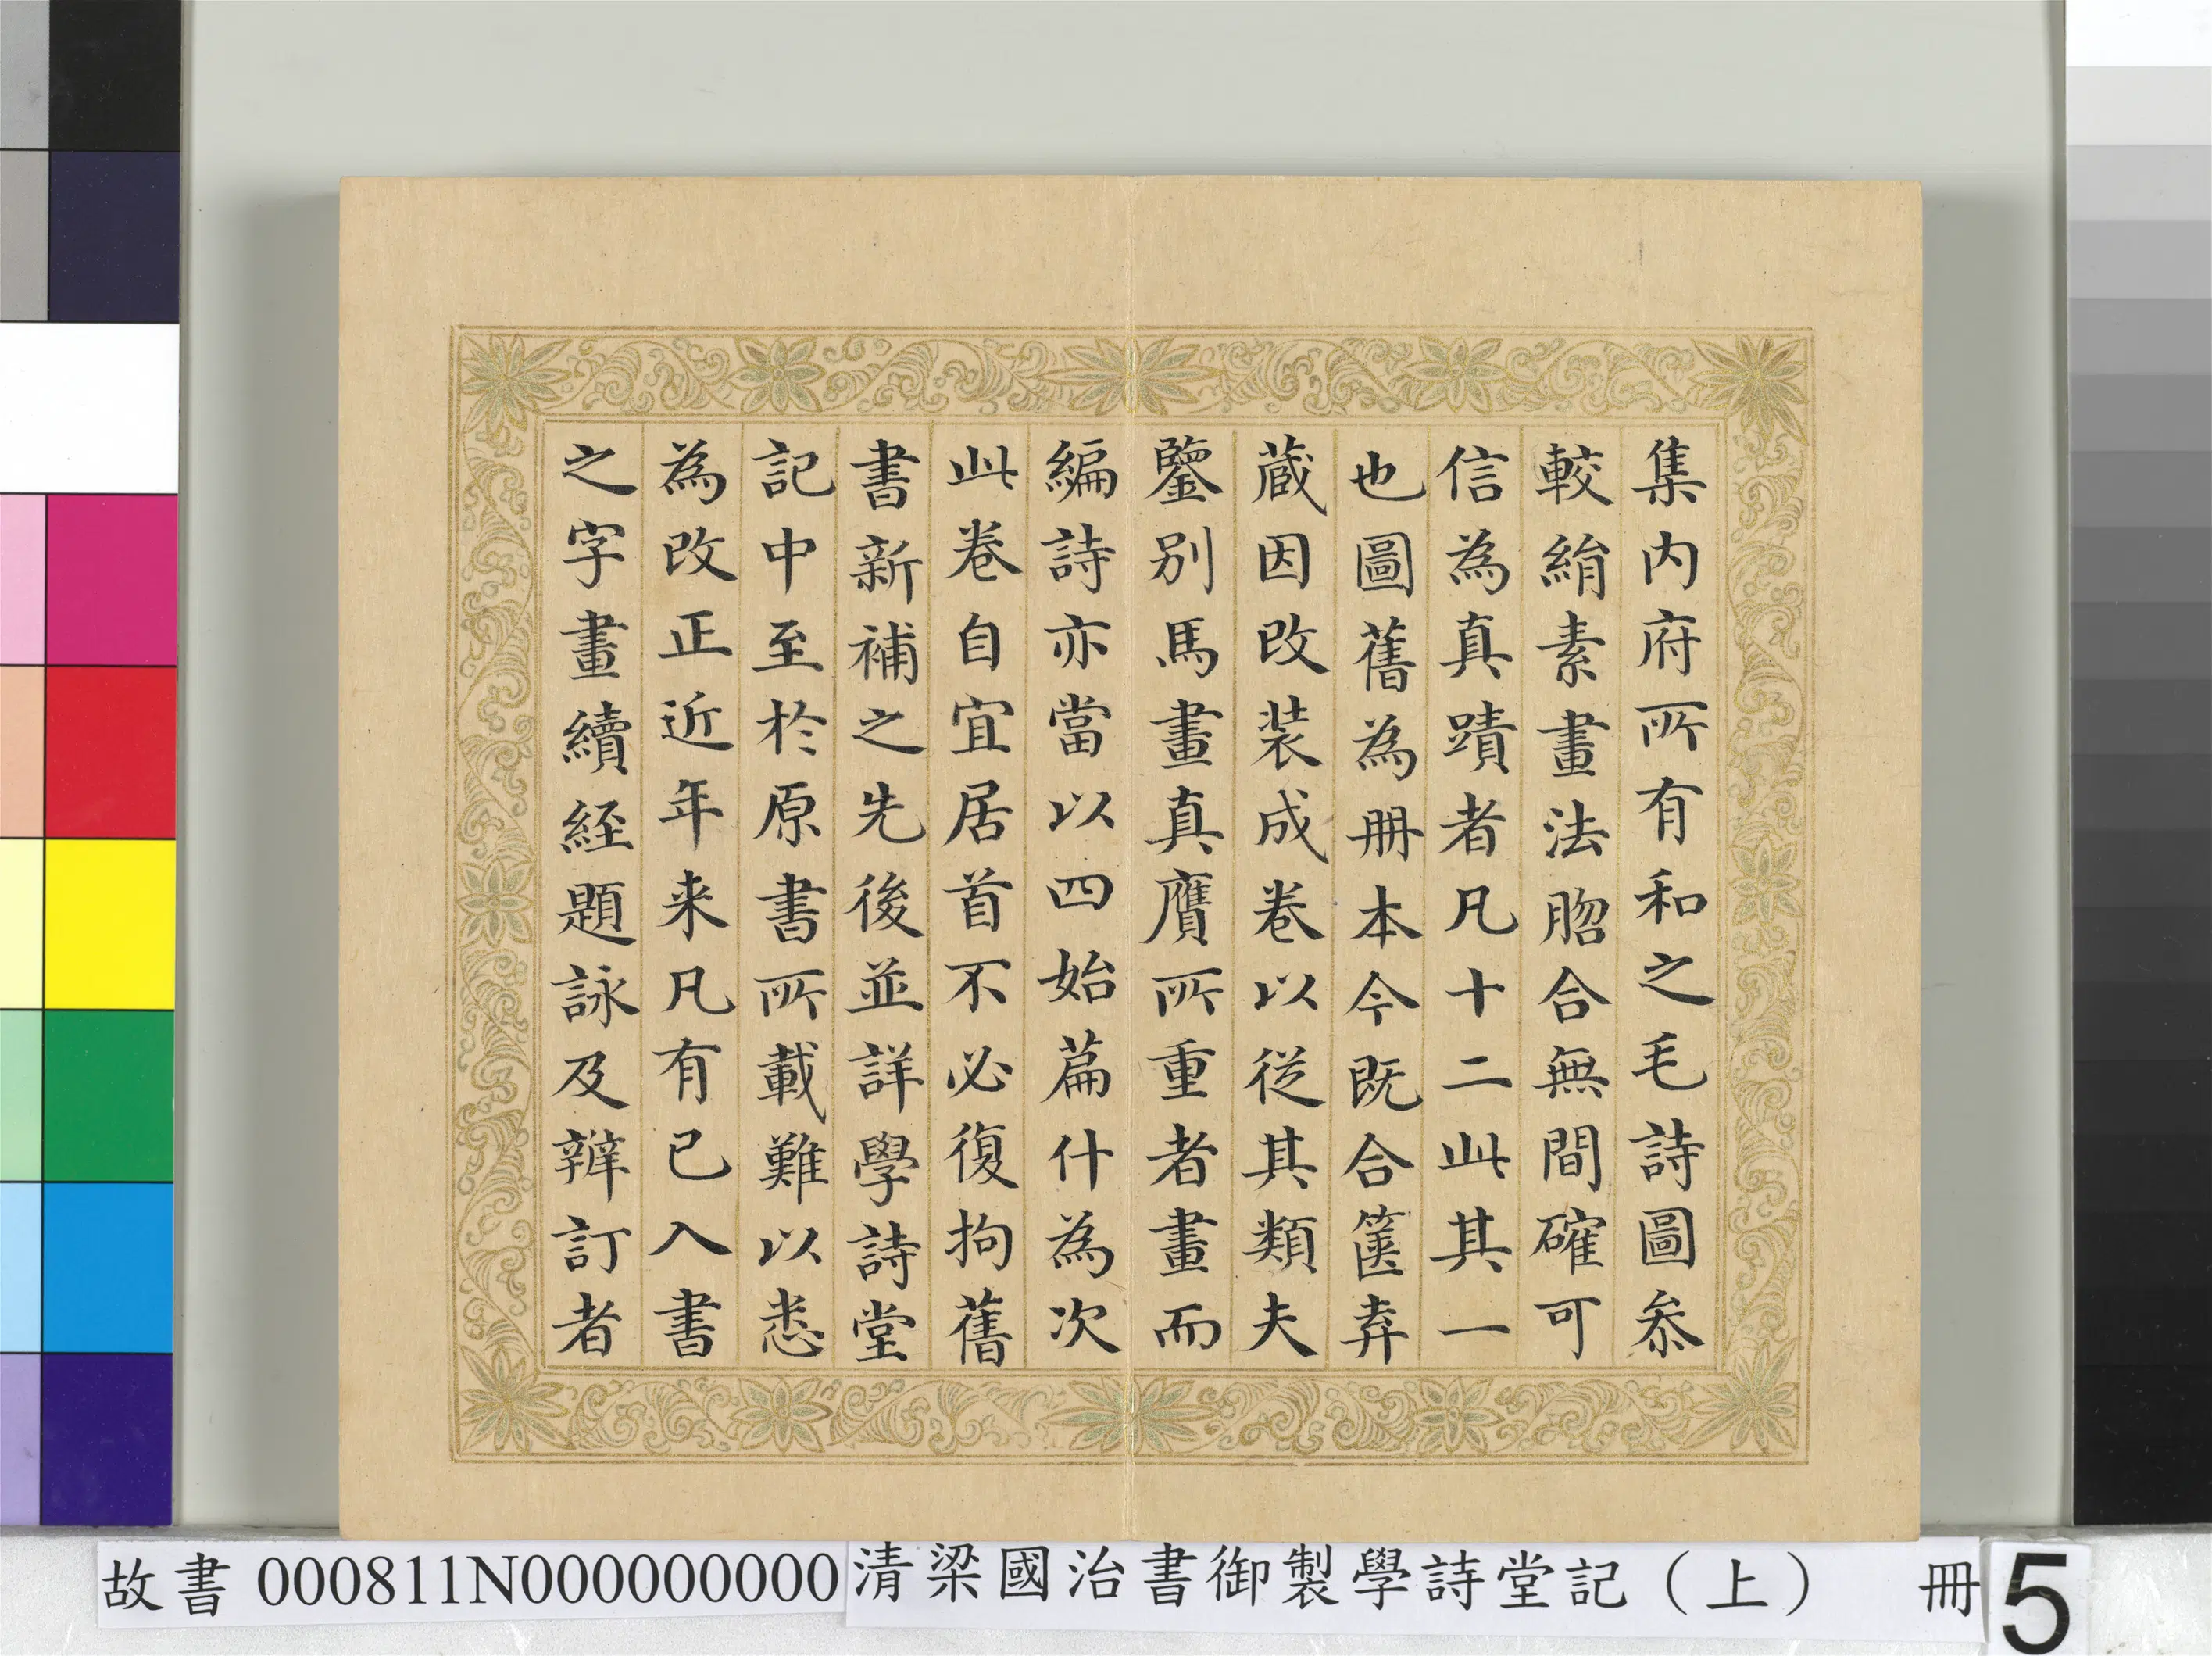 集内府所有和之毛詩圖叅
較絹素畫法脗合無間確可
信為真蹟者凡十二此其一
也圖舊為冊本今既合篋弆
蔵因改装成卷以従其類夫
鑒别馬畫真贋所重者畫而
編詩亦當以四始篇什為次
此卷自宜居首不必復拘舊
書新補之先後並詳學詩堂
記中至於原書所載難以悉
為改正近年来凡有已入書
之字畫續経題詠及辨訂者
故書 000811N000000000 清梁國治書御製學詩堂記（上） 冊 5